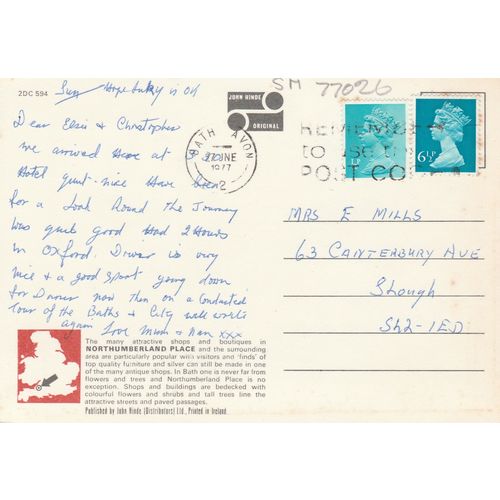 2DC 594
Sun Hope Inky is OK
Dear Elsie & Christopher
we arrived Here at 3
Hotel quit-nice Have been
for a Look Round the Journey
was quit good Had 2 Hours
in Oxford. Driver is very
nice & a good sport going down
for Dinner now then on a Conducted
Tour of the Baths & City will write
again Love Mum & Nan xxx
JOHN HINDE
ORIGINAL
SM 77026
BATH AVON
JNE
1977
REMEMBER
to use the
POST CO
½P
6½P
MRS E MILLS
63 CANTERBURY AVE
Slough
SL2-1ED
The many attractive shops and boutiques in
NORTHUMBERLAND PLACE and the surrounding
area are particularly popular with visitors and 'finds' of
top quality furniture and silver can still be made in one
of the many antique shops. In Bath one is never far from
flowers and trees and Northumberland Place is no
exception. Shops and buildings are bedecked with
colourful flowers and shrubs and tall trees line the
attractive streets and paved passages.
Published by John Hinde (Distributors) Ltd., Printed in Ireland.